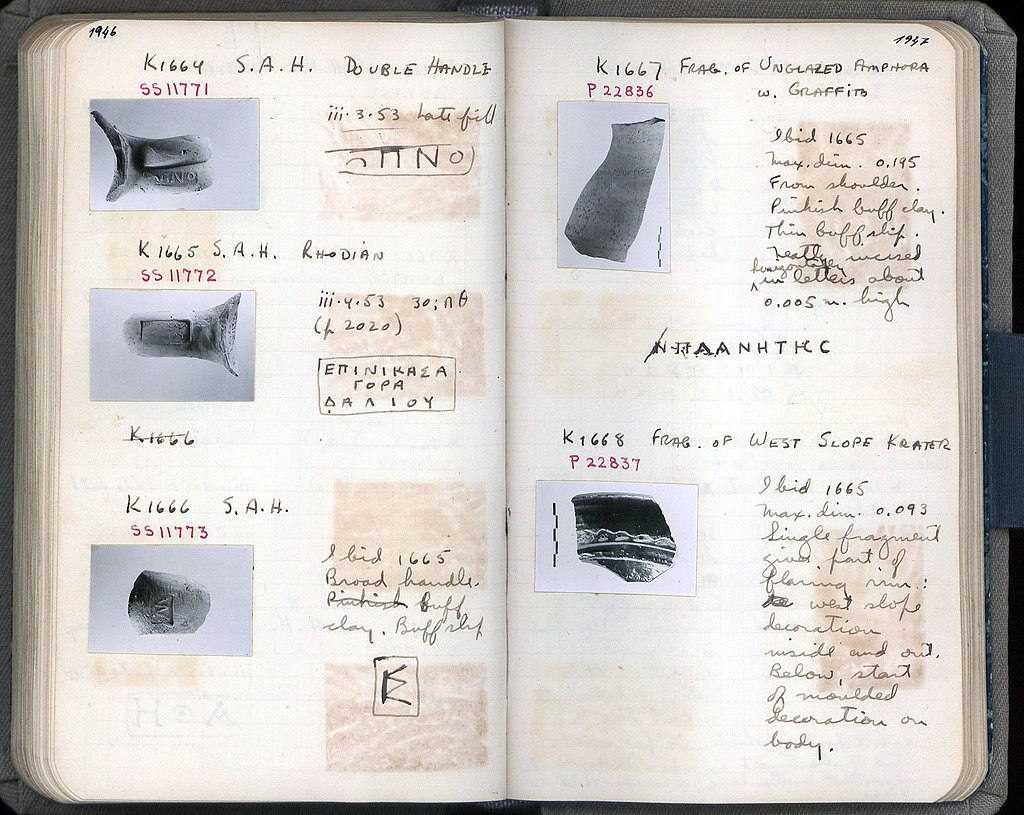 1946
K1664 S.A.H. DOUBLE HANDLE
SS 11771
iii·3·53 Late fill
ΠΝΟ
K1665 S.A.H. RHODIAN
SS 11772
iii·4·53 30;ΠΘ
(p 2020)
ΕΠΙΝΙΚΑΣΑ
ΓΟΡΑ
ΔΑΛΙΟΥ
K1666
K1666 S.A.H.
SS 11773
Ibid 1665
Broad handle.
Pinkish buff
clay. Buff slip
1947
K1667 FRAG. OF UNGLAZED AMPHORA
W. GRAFFITO
P 22836
Ibid 1665
Max. dim. 0.195
From shoulder.
Pinkish buff clay.
Thin buff slip.
Neatly incised
in letters about
0.005 m. high
ΠΛΑΝΗΤΗC
K1668 FRAG. OF WEST SLOPE KRATER
P 22837
Ibid 1665
Max. dim. 0.093
Single fragment
gives part of
flaring rim:
west slope
decoration
inside and out.
Below, start
of moulded
decoration on
body.